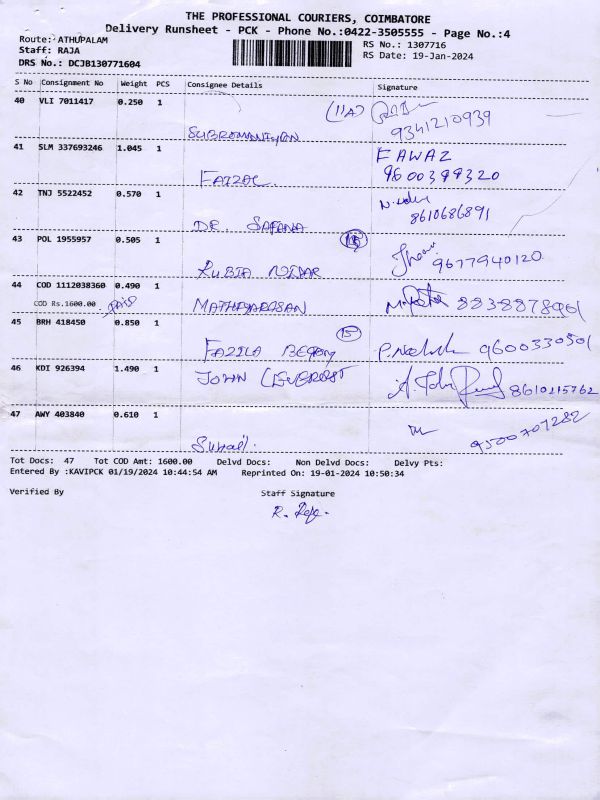 THE PROFESSIONAL COURIERS, COIMBATORE
Delivery Runsheet - PCK - Phone No.:0422-3505555 - Page No.:4
Route: ATHUPALAM
Staff: RAJA
DRS No.: DCJB130771604
RS No.: 1307716
RS Date: 19-Jan-2024
S No Consignment No Weight PCS Consignee Details Signature
40 VLI 7011417 0.250 1 (11A)
9341210939
SUBROMANIYAN
41 SLM 337693246 1.045 1 FAWAZ
9600399320
FAIZAL
42 TNJ 5522452 0.570 1
8610686891
DR. SAFANA
43 POL 1955957 0.505 1
9677940120
RUBIA NISAR
44 COD 1112038360 0.490 1
COD Rs.1600.00 PAID MATHIYARASAN 8838878901
45 BRH 418450 0.850 1 15
FAZILA BEGAM 9600330501
46 KDI 926394 1.490 1 JOHN 8610215762
47 AWY 403840 0.610 1 9500707282
Suhail.
Tot Docs: 47 Tot COD Amt: 1600.00 Delvd Docs: Non Delvd Docs: Delvy Pts:
Entered By :KAVIPCK 01/19/2024 10:44:54 AM Reprinted On: 19-01-2024 10:50:34
Verified By Staff Signature
R. Raja.